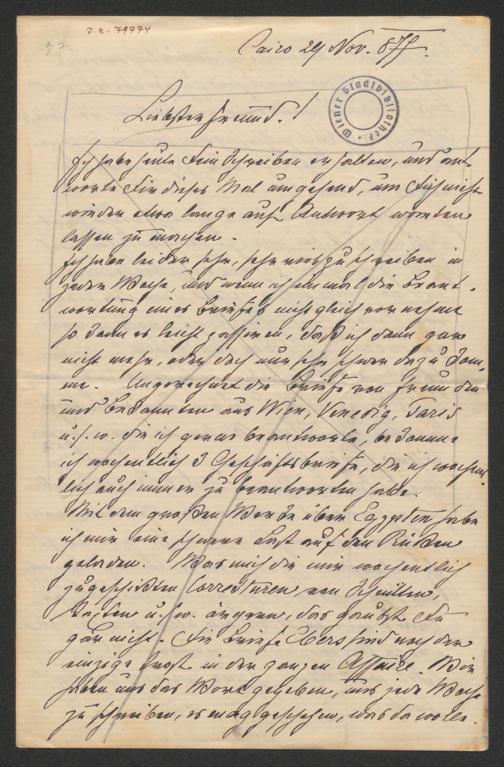 J. N. 79774
52
Cairo 29 Nov. 877.
Wiener Stadtbibliothek
Liebster Freund!
Ich habe heute Dein Schreiben erhalten, und ant
worte Dir dieses Mal umgehend, um Dich nicht
wieder etwa lange auf Antwort warten
lassen zu machen.
Ich habe leider sehr, sehr viel zu schreiben in
jeder Woche, und wenn ich einmal die Beant-
wortung eines Briefes nicht gleich vornehme
so kann es leicht passiren, daß ich dann gar
nicht mehr, oder doch nur sehr schwer dazu kom-
me. Ungerechnet die Briefe von Freunden
und Bekannten aus Wien, Venedig, Paris
u.s.w. die ich gerne beantworte, bekomme
ich wochentlich 3 Geschäftsbriefe, die ich wochent
lich auch immer zu beantworten habe.
Mit dem großen Werke über Egypten habe
ich mir eine schwere Last auf den Rücken
geladen. Was mich die mir wochentlich
zugeschickten Correcturen von
u.s.w. ärgern, das glaubst Du
gar nicht. Die Briefe Ebers sind noch der
einzige Trost in der ganzen Affaire. Wir
haben uns das Wort gegeben, uns jede Woche
zu schreiben, es mag geschehen, was da wolle.